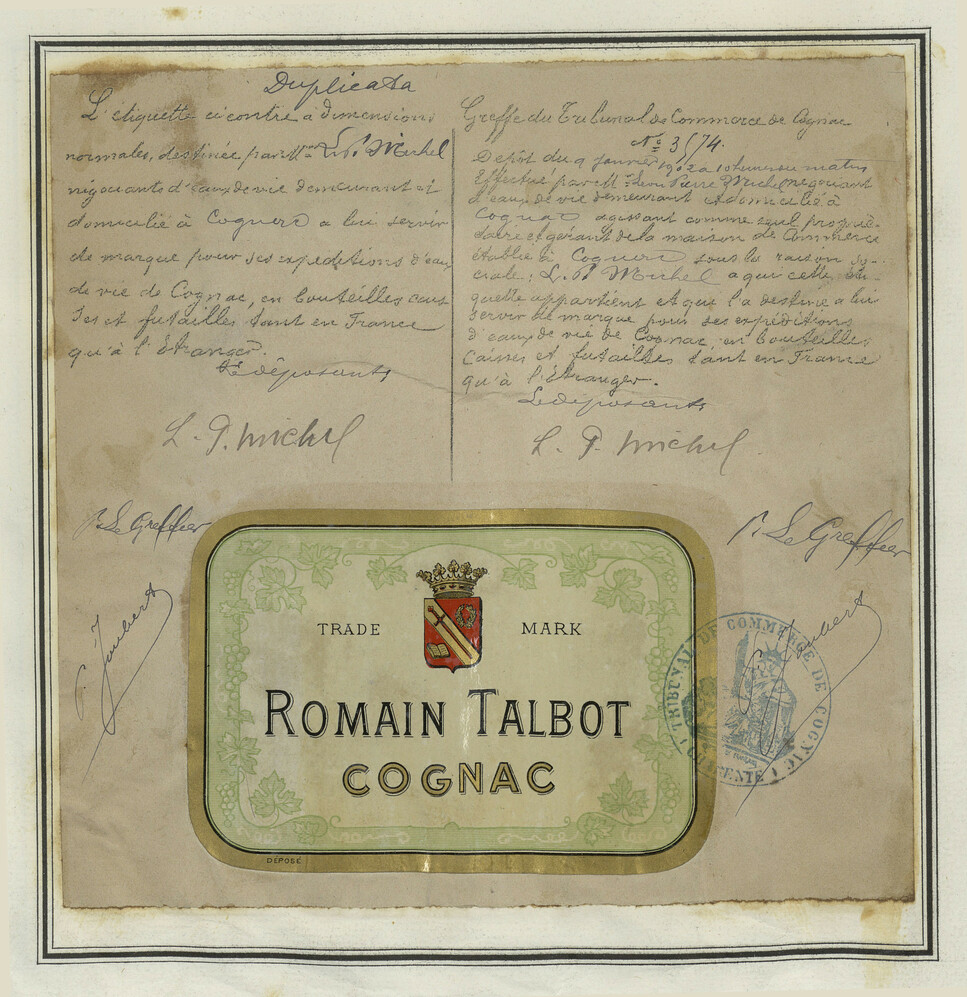 Duplicata
L'étiquette ci contre à dimensions
normales, destinée par Mr L. P. Michel
négociants d'eaux de vie demeurant et
domicilié à Cognac a lui servir
de marque pour ses expeditions d'eaux
de vie de Cognac, en bouteilles cais
ses et futailles tant en France
qu'à l'étranger.
Le déposants
L. P. Michel
P. Le Greffier
P. Joubert
Greffe du Tribunal de Commerce de Cognac
No 3574.
Depôt du 9 janvier 1902 a 10 heures du matin
Effectué par Mr Léon Pierre Michel négociant
d'eaux de vie demeurant et domicilié à
Cognac agissant comme seul proprié-
taire et gérant de la maison de Commerce
établie à Cognac sous la raison so-
ciale: L. P. Michel a qui cette éti-
quette appartient et qui l'a destine a lui
servir de marque pour ses expéditions
d'eaux de vie de Cognac en bouteilles
Caisses et futailles tant en France
qu'à l'étranger.
Le déposants
L. P. Michel
P. Le Greffier
P. Joubert
TRADE MARK
ROMAIN TALBOT
COGNAC
DÉPOSÉ
TRIBUNAL DE COMMERCE DE COGNAC
(CHARENTE)